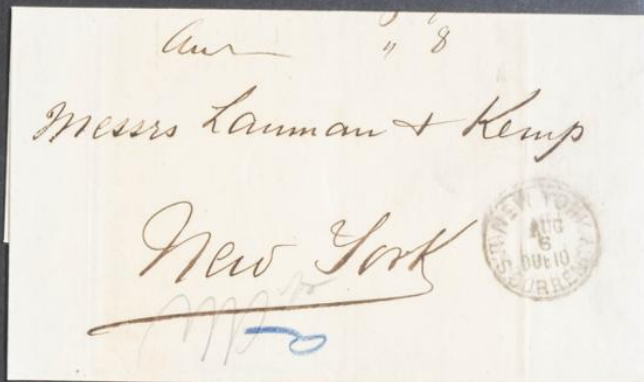 " 8
Messrs Lanman & Kemp
New York
NEW YORK
AUG
U.S. CURRENCY